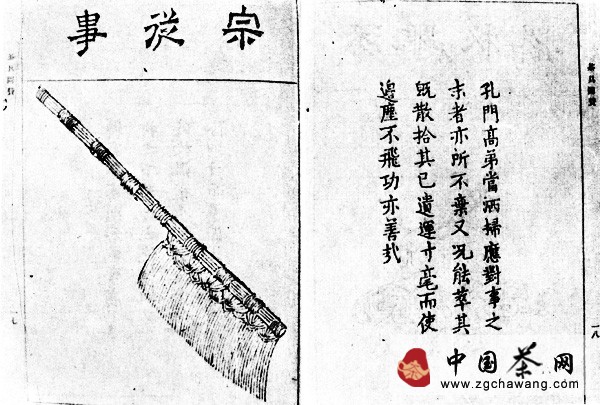 宗從事
茶具圖贊
孔門高弟當洒掃應對事之
末者亦所不棄又况能萃其
既散拾其已遺運寸毫而使
邊塵不飛功亦善哉
一八
中国茶网
www.zgchawang.com